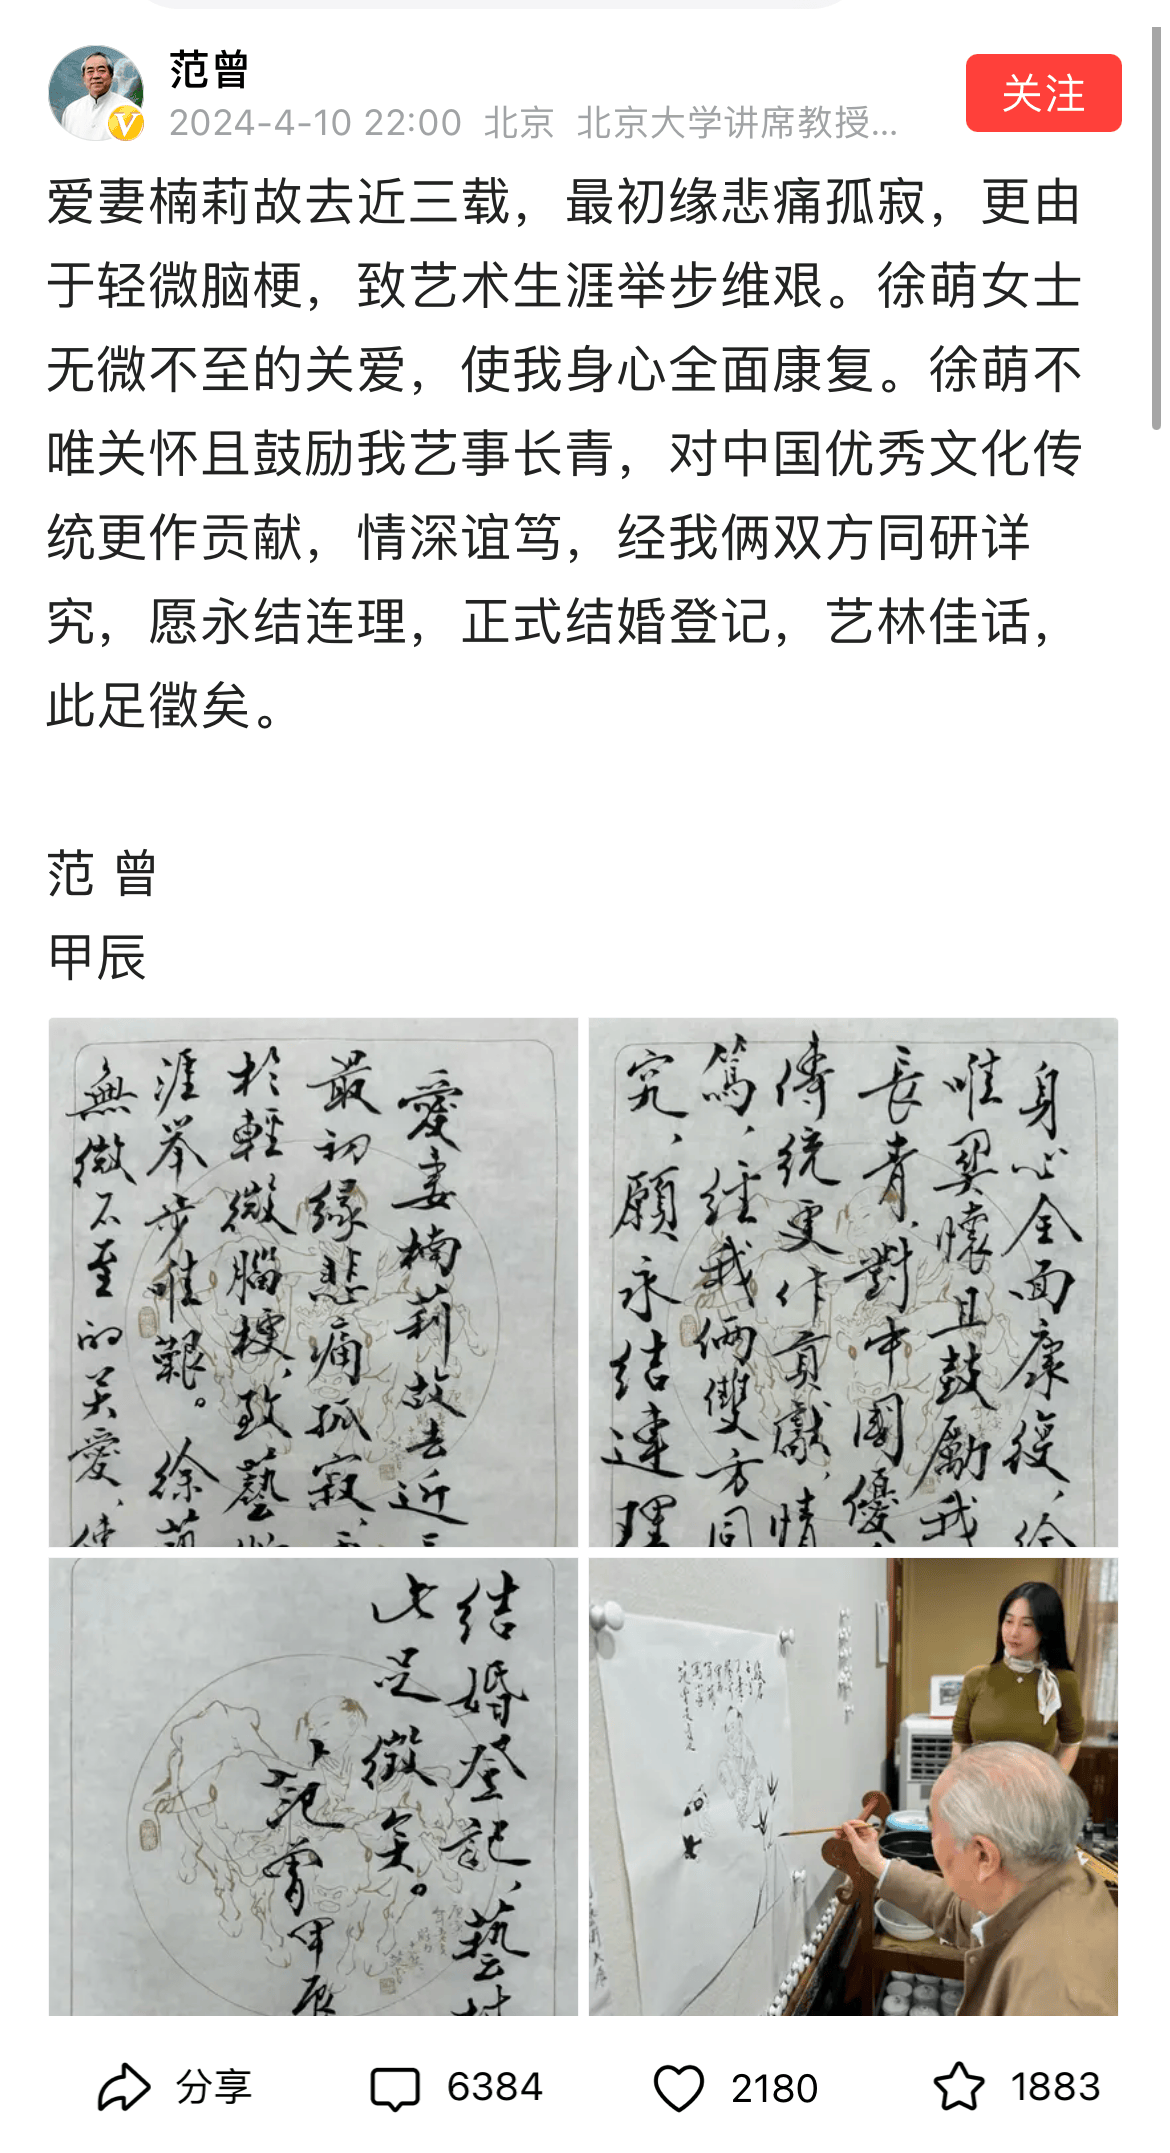 范曾
关注
2024-4-10 22:00 北京 北京大学讲席教授...
爱妻楠莉故去近三载，最初缘悲痛孤寂，更由
于轻微脑梗，致艺术生涯举步维艰。徐萌女士
无微不至的关爱，使我身心全面康复。徐萌不
唯关怀且鼓励我艺事长青，对中国优秀文化传
统更作贡献，情深谊笃，经我俩双方同研详
究，愿永结连理，正式结婚登记，艺林佳话，
此足徵矣。
范 曾
甲辰
愛妻楠莉故去近三
最初缘悲痛孤寂，
於輕微腦梗，致藝
涯举步唯艱。徐萌
無微不至的关愛，使
身心全面康復，徐
唯関懷且鼓勵我
長青，對中國優
傳統更作貢獻，情
篤，经我俩雙方同
究，願永结連理
结婚登記，藝林
此足徵矣。
范曾甲辰
分享
6384
2180
1883